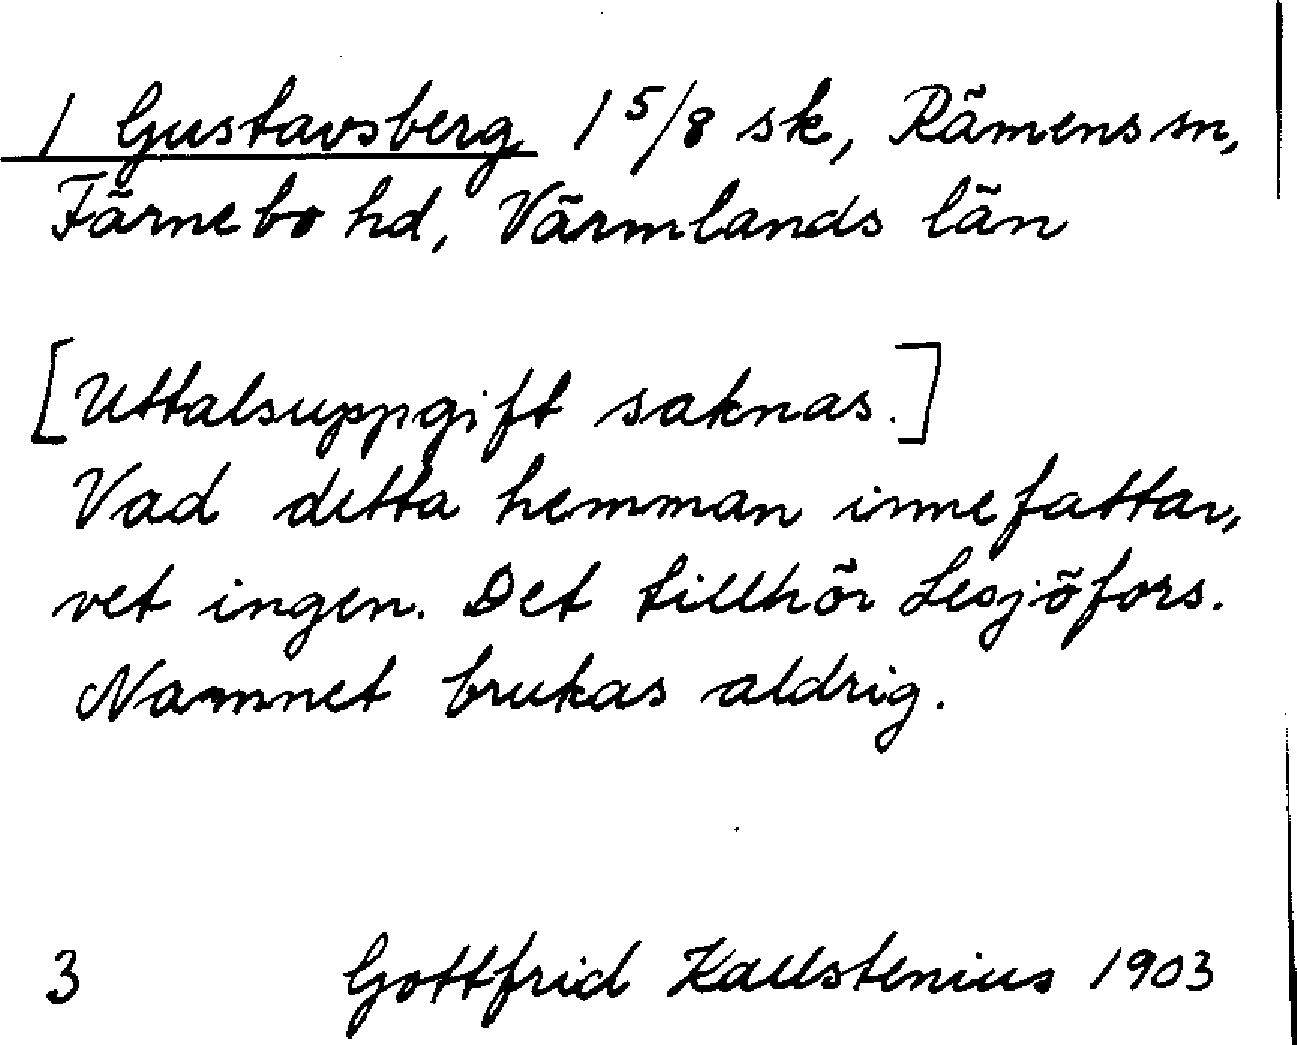 1 Gustavsberg 1 5/8 sk, Rämens sn,
Färnebo hd, Värmlands län
[Uttalsuppgift saknas.]
Vad detta hemman innefattar,
vet ingen. Det tillhör Lesjöfors.
Namnet brukas aldrig.
3 Gottfrid Kallstenius 1903